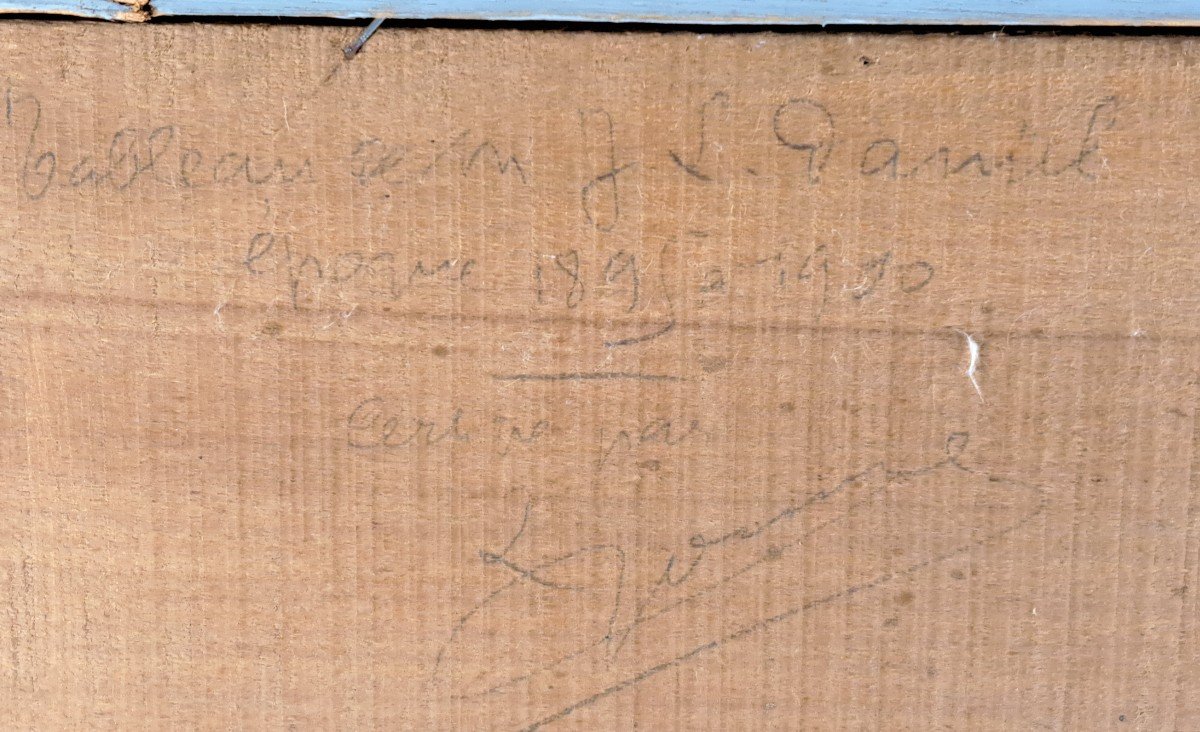 Tableau de M J L. Daniel
époque 1895 à 1910
Certifié par